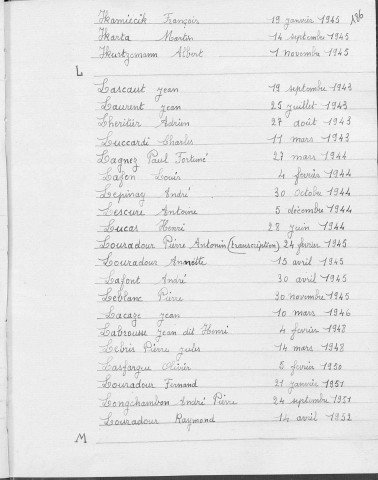 Kamiecik François 19 janvier 1945 186
Karta Martin 14 septembre 1945
Kurtzemann Albert 1 novembre 1945
L
Lascaut Jean 19 septembre 1943
Laurent Jean 25 juillet 1943
Lheritier Adrien 27 août 1943
Luccardi Charles 11 mars 1943
Lagnez Paul Fortuné 27 mars 1944
Lafon Louis 4 février 1944
Lepinay André 30 octobre 1944
Lescure Antoine 5 décembre 1944
Lucas Henri 28 juin 1944
Louradour Pierre Antonin (transcription) 24 février 1945
Louradour Annette 15 avril 1945
Lafont André 30 avril 1945
Leblanc Pierre 30 novembre 1945
Lacaze Jean 10 mars 1946
Labrousse Jean dit Henri 4 février 1948
Lebris Pierre Jules 14 mars 1948
Lasfargue Olivier 5 février 1950
Louradour Fernand 21 janvier 1951
Longchambon André Pierre 24 septembre 1951
Louradour Raymond 14 avril 1952
M